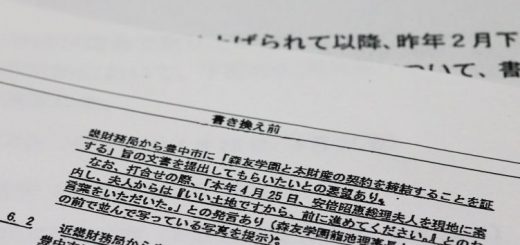 げられて以降、昨年２月下
ついて、書
書き換え前
畿財務局から豊中市に「森友学園と本財産の契約を締結することを証
する」旨の文書を提出してもらいたいとの要望あり。
なお、打合せの際、「本年４月25日、安倍昭恵総理夫人を現地に案
内し、夫人からは『いい土地ですから、前に進めてください』とのお
言葉をいただいた。」との発言あり（森友学園籠池理事長
の前で並んで写っている写真を提示）。
６.２
近畿財務局から
豊中市